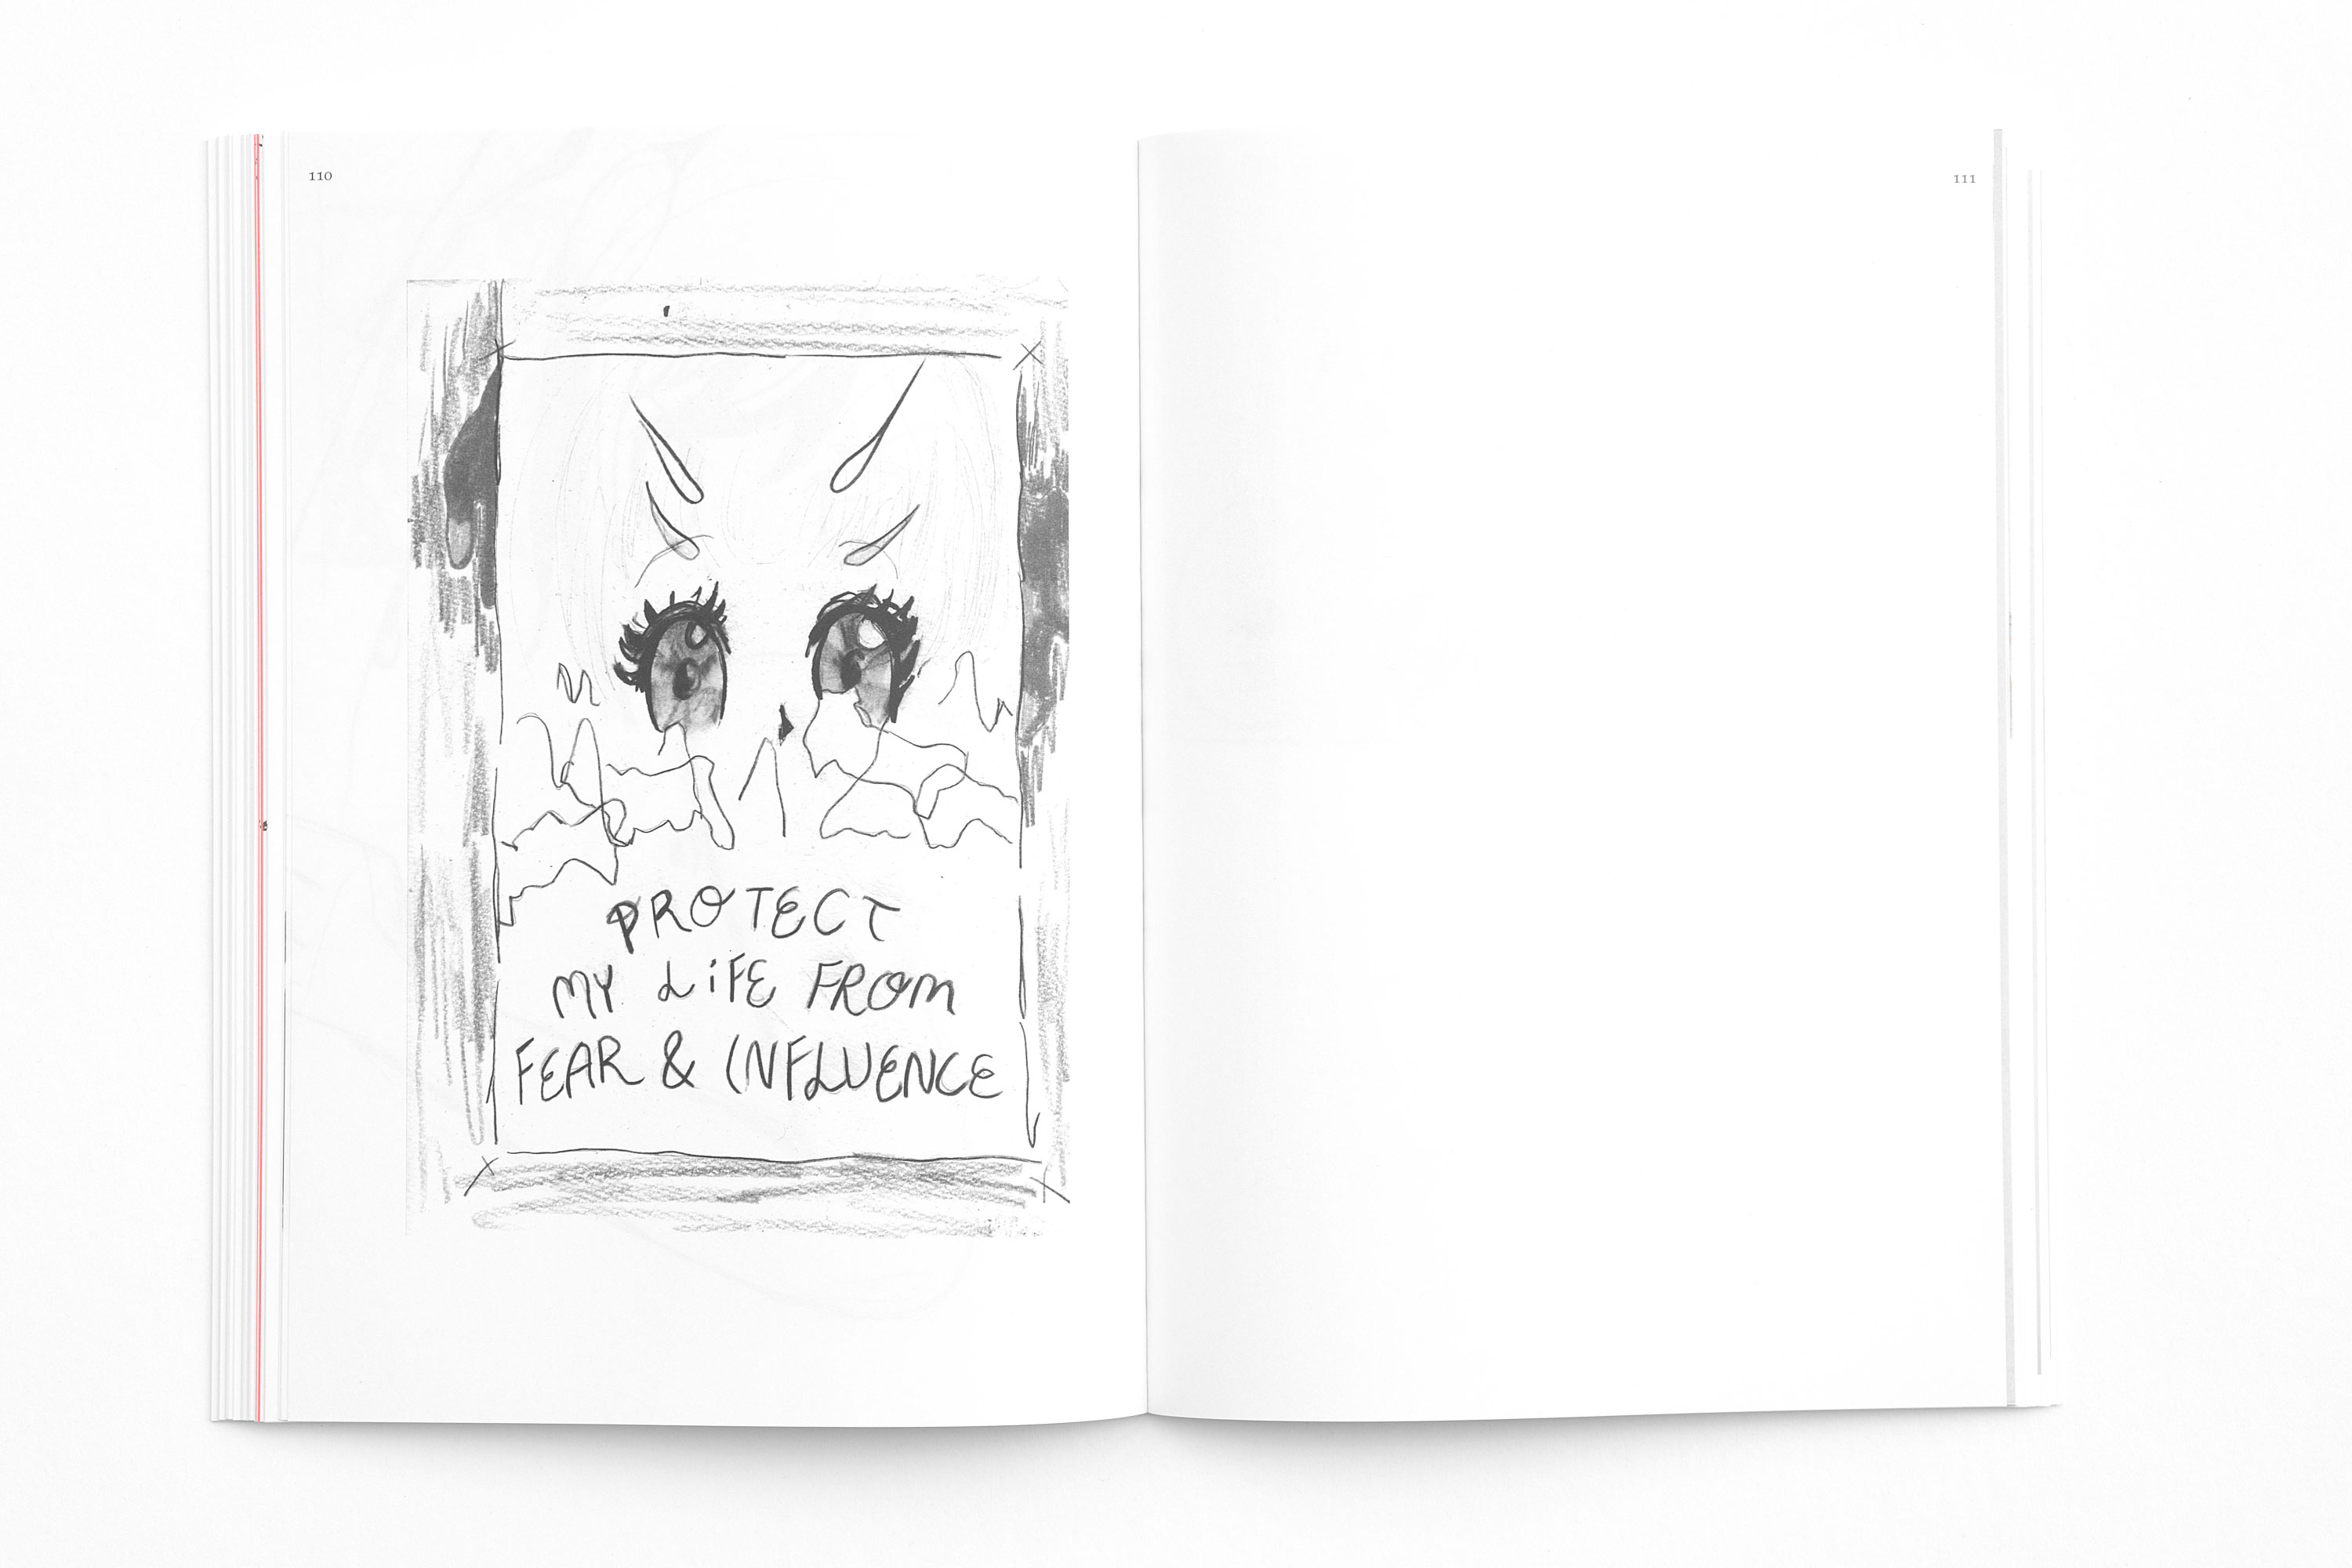 110
PROTECT
MY LiFE FROM
FEAR & INFLUENCE
111